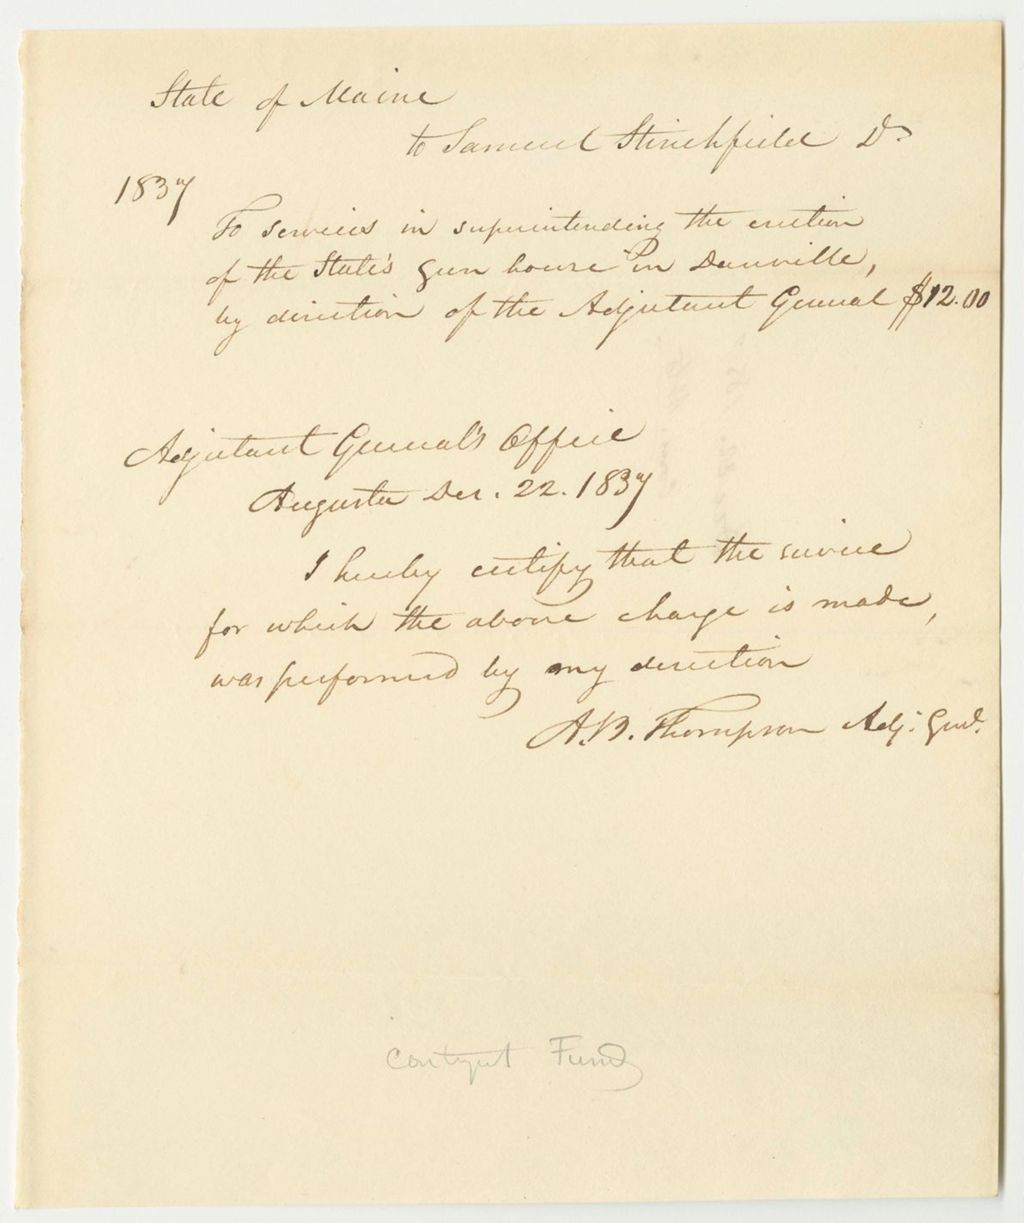 State of Maine
to Samuel Stinchfield Dr
1837
To services in superintending the erection
of the State's gun house in Danville,
by direction of the Adjutant General $12.00
Adjutant General's Office
Augusta Dec. 22. 1837
I hereby certify that the service
for which the above charge is made,
was performed by my direction
A.B. Thompson Adj. Genl.
Contgnt Fund